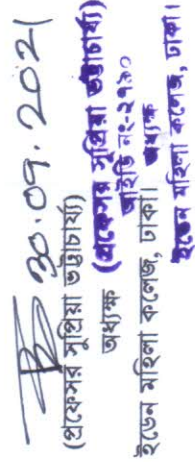 30.09.2021
(প্রফেসর সুপ্রিয়া ভট্টাচার্য্য)
অধ্যক্ষ
ইডেন মহিলা কলেজ, ঢাকা।
(প্রফেসর সুপ্রিয়া ভট্টাচার্য্য)
আইডি নং-২৭৯০
অধ্যক্ষ
ইডেন মহিলা কলেজ, ঢাকা।